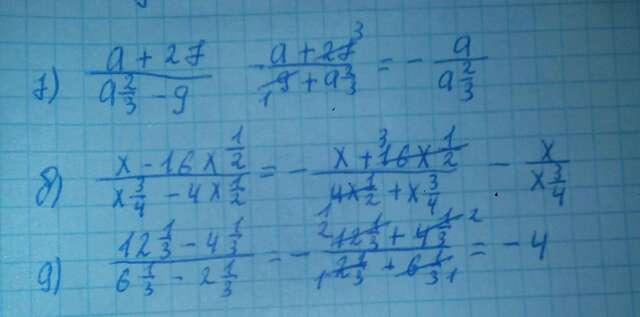 7) (a + 27)/(a^(2/3) - 9) - (a + 27 3)/(1 9 + a^(2/3)) = - a/a^(2/3)
8) (x - 16x^(1/2))/(x^(3/4) - 4x^(1/2)) = - (x + 3 16x^(1/2))/(4x^(1/2) + x^(3/4)) - x/x^(3/4)
9) (12^(1/3) - 4^(1/3))/(6^(1/3) - 2^(1/3)) = - (2 12^(1/3) + 4^(1/3) 2)/(1 2^(1/3) + 6^(1/3) 1) = - 4